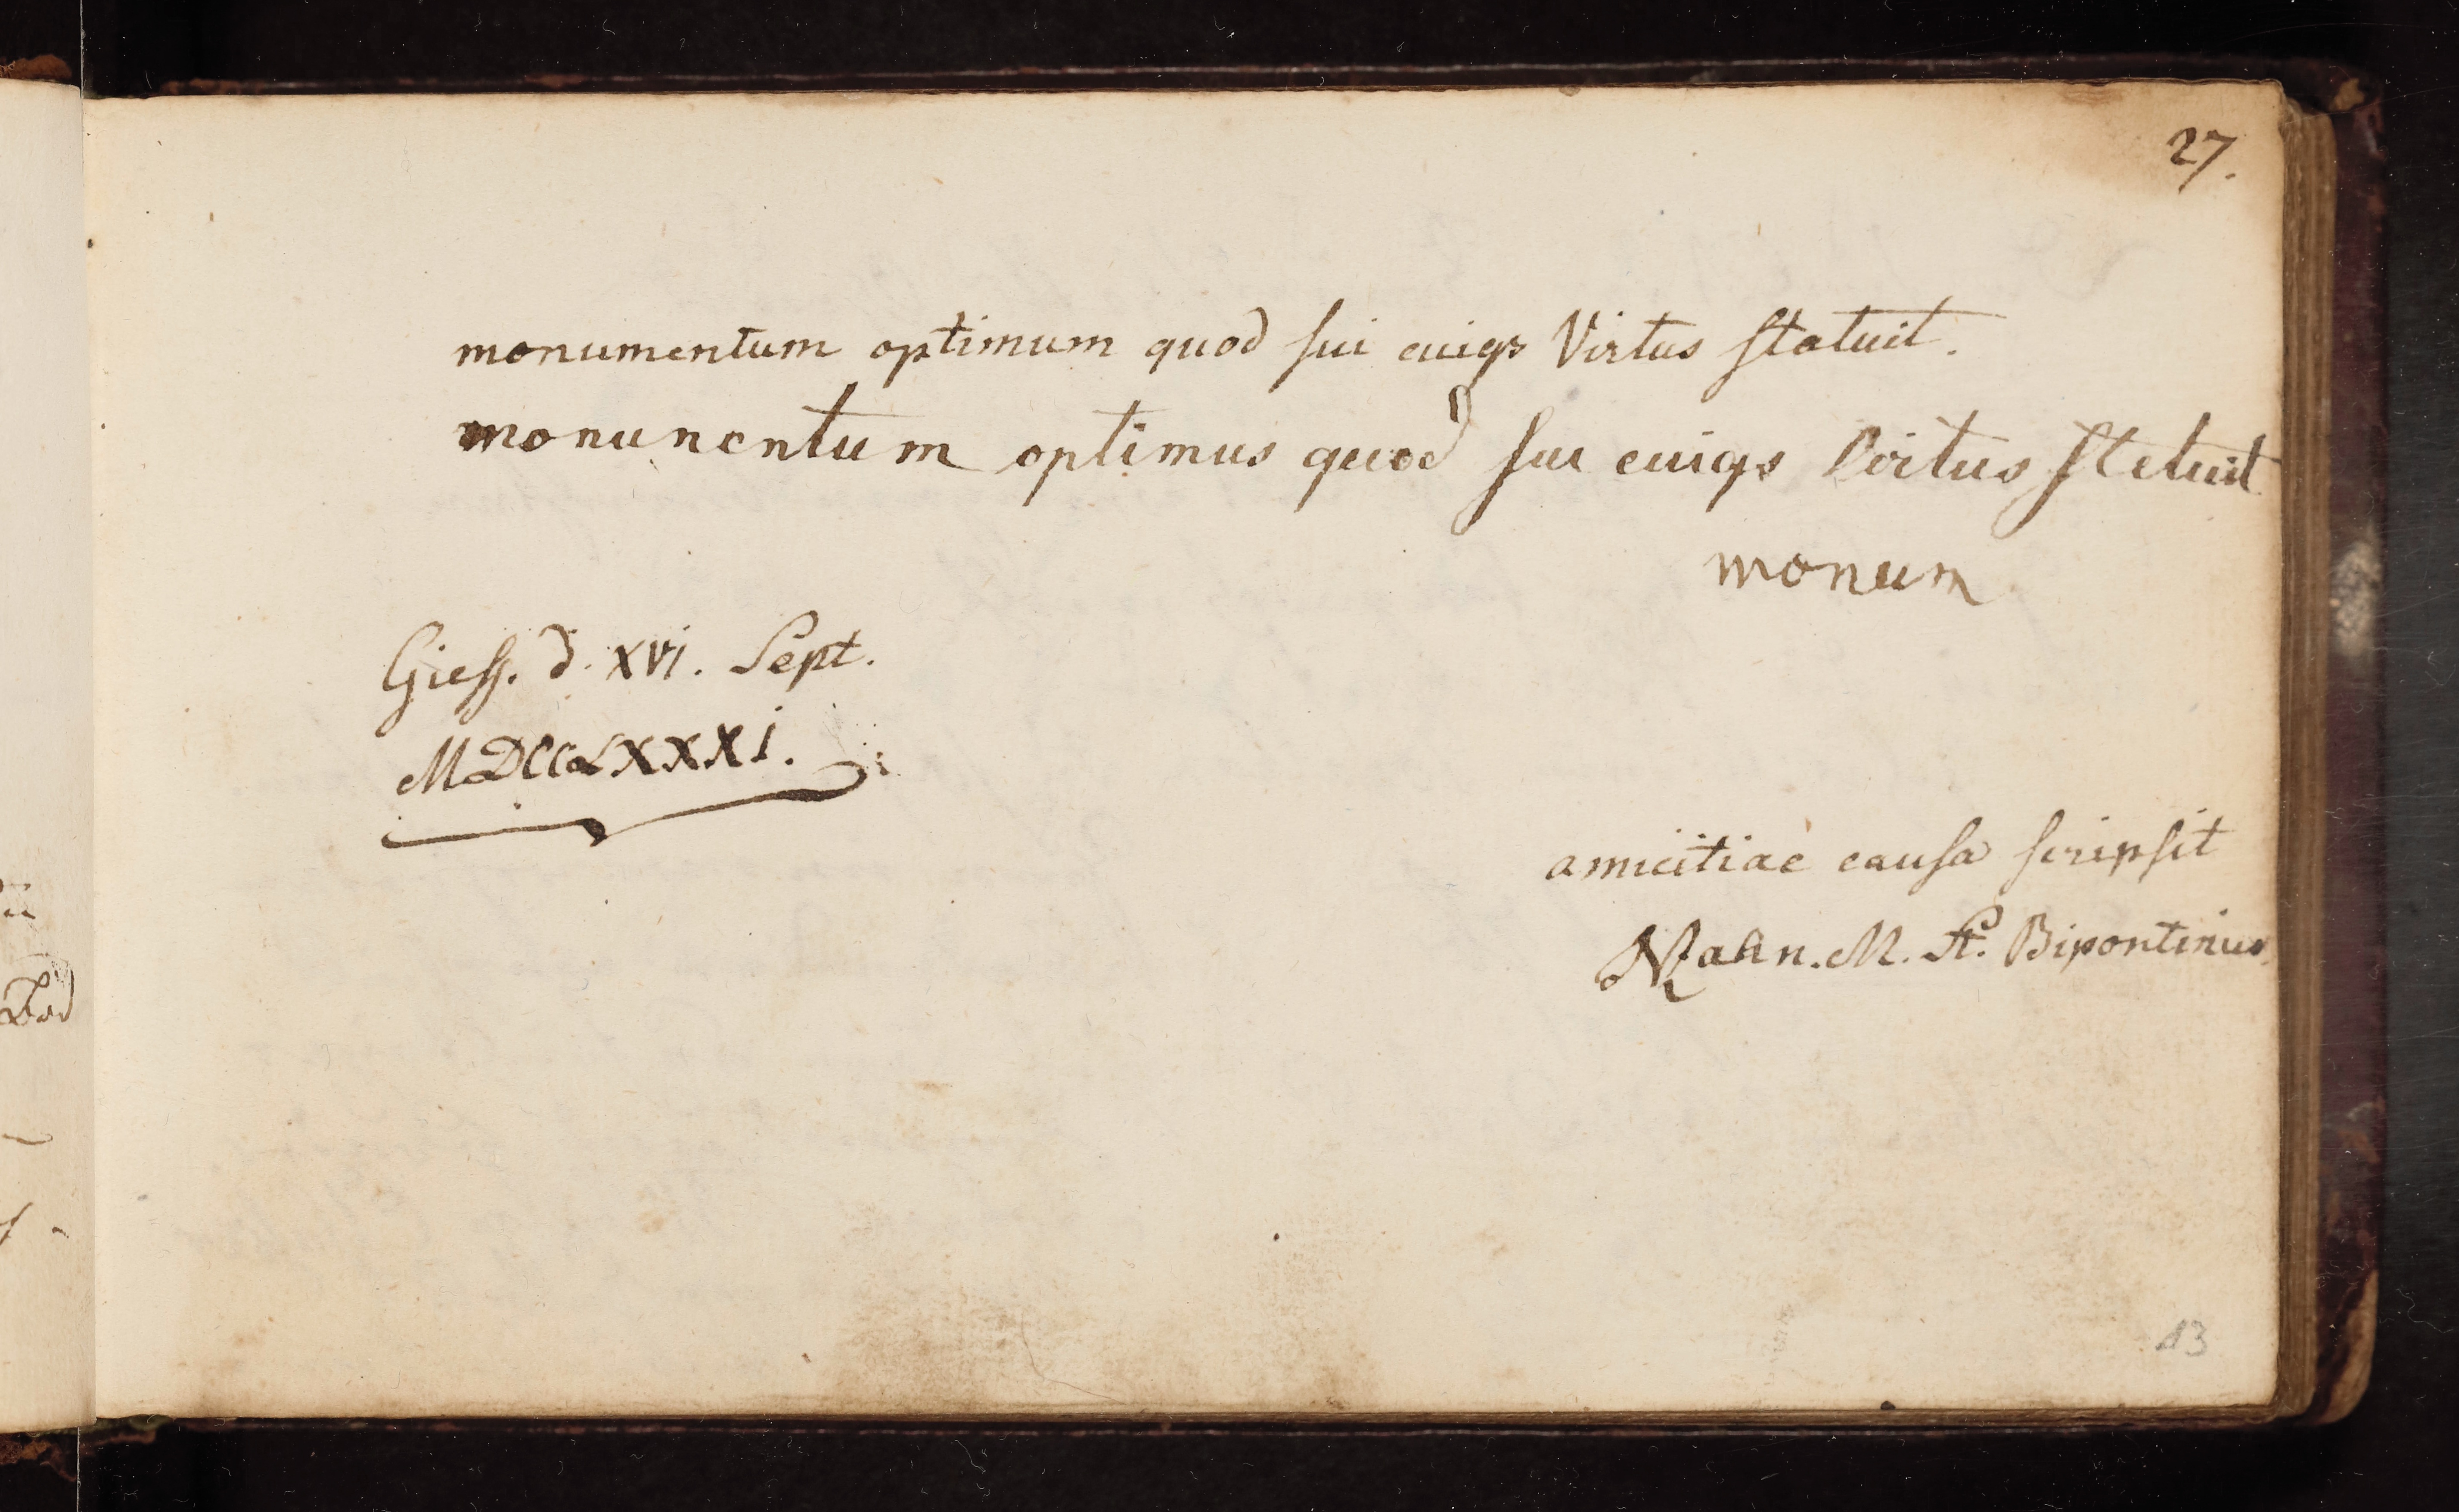 27.
monumentum optimum quod sui cuiqs Virtus statuit.
monunentum optimus quod sui cuiqs Virtus Statuit
monum
Giess. d. XVI. Sept.
MDCCLXXXI.
amicitiae causa scripsit
Mahn. M. St. Bipontinus.
13